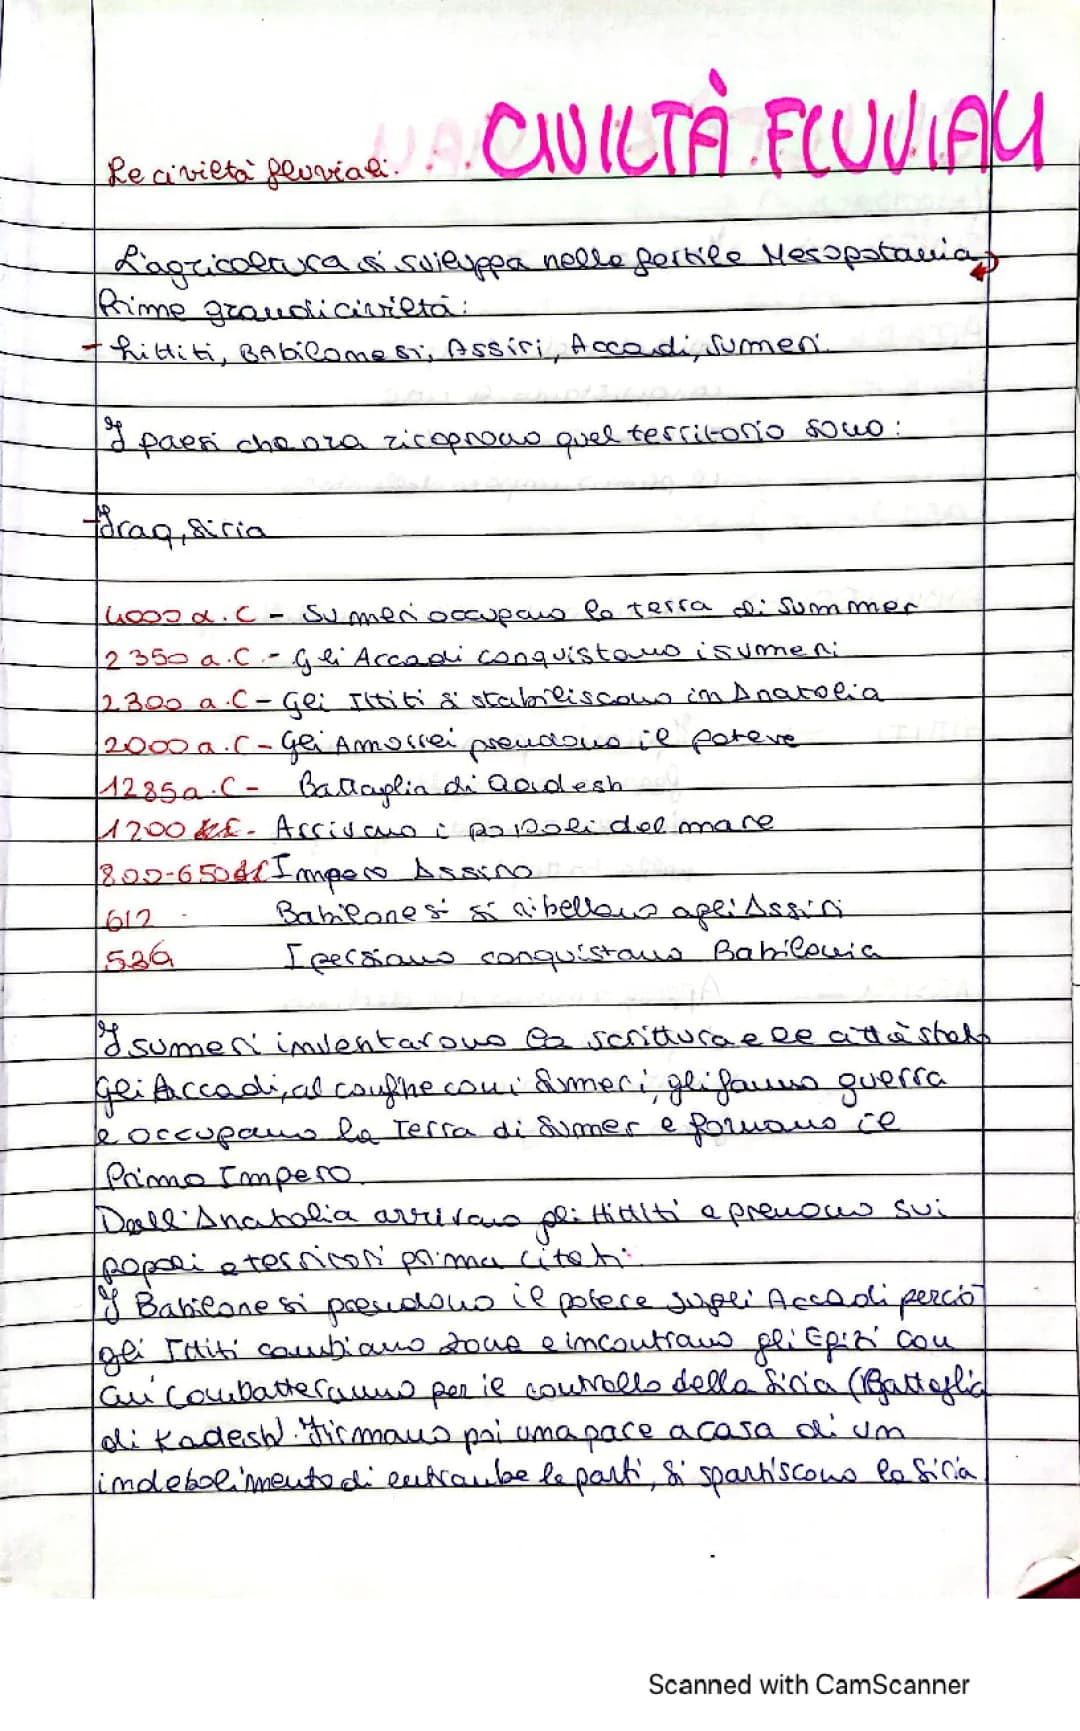 CIVILTÀ FLUVIALI
Le civiltà fluviali.
L'agricoltura si sviluppa nella fertile Mesopotamia
Prime grandi civiltà:
- hittiti, BAbilonesi, Assiri, Accadi, Sumeri.
I paesi che ora ricoprono quel territorio sono:
- Iraq, Siria
4000 a.C - Sumeri occupano la terra di Summer
2350 a.C. - Gli Accadi conquistano i sumeri
2300 a.C - Gli Ittiti si stabiliscono in Anatolia
2000 a.C - Gli Amorrei prendono il potere
1285 a.C - Battaglia di Qadesh
1200 - Arrivano i popoli del mare
800-650 Impero Assiro
612 Babilonesi si ribellano agli Assiri
539 I persiano conquistano Babilonia
I sumeri inventarono la scrittura e le città stato
Gli Accadi, al confine con i Sumeri, gli fanno guerra
e occupano la Terra di Sumer e formano il
Primo Impero.
Dall'Anatolia arrivano gli Hittiti e prenono sui
popoli e territori prima citati.
I Babilonesi prendono il potere sugli Accadi perciò
gli Ittiti cambiano zona e incontrano gli Egizi con
cui combatteranno per il controllo della Siria (Battaglia
di Kadesh). Firmano poi una pace a casa di un
indebolimento di entrambe le parti, si spartiscono la Siria
Scanned with CamScanner